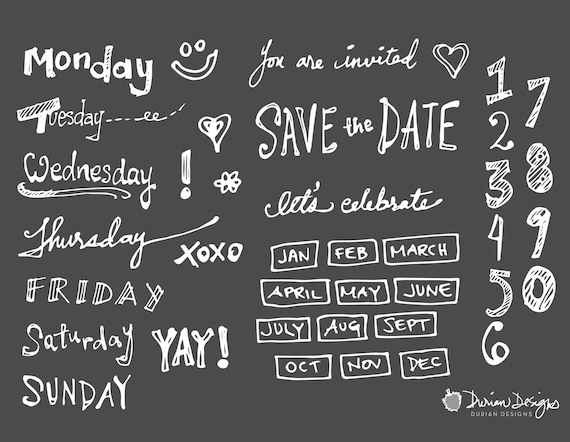 Monday
Tuesday
Wednesday !
Thursday
XOXO
FRIDAY
Saturday
YAY!
SUNDAY
You are invited
SAVE the DATE
let's celebrate
JAN FEB MARCH
APRIL MAY JUNE
JULY AUG SEPT
OCT NOV DEC
1
2
3
4
5
6
7
8
9
0
Durian Designs
DURIAN DESIGNS